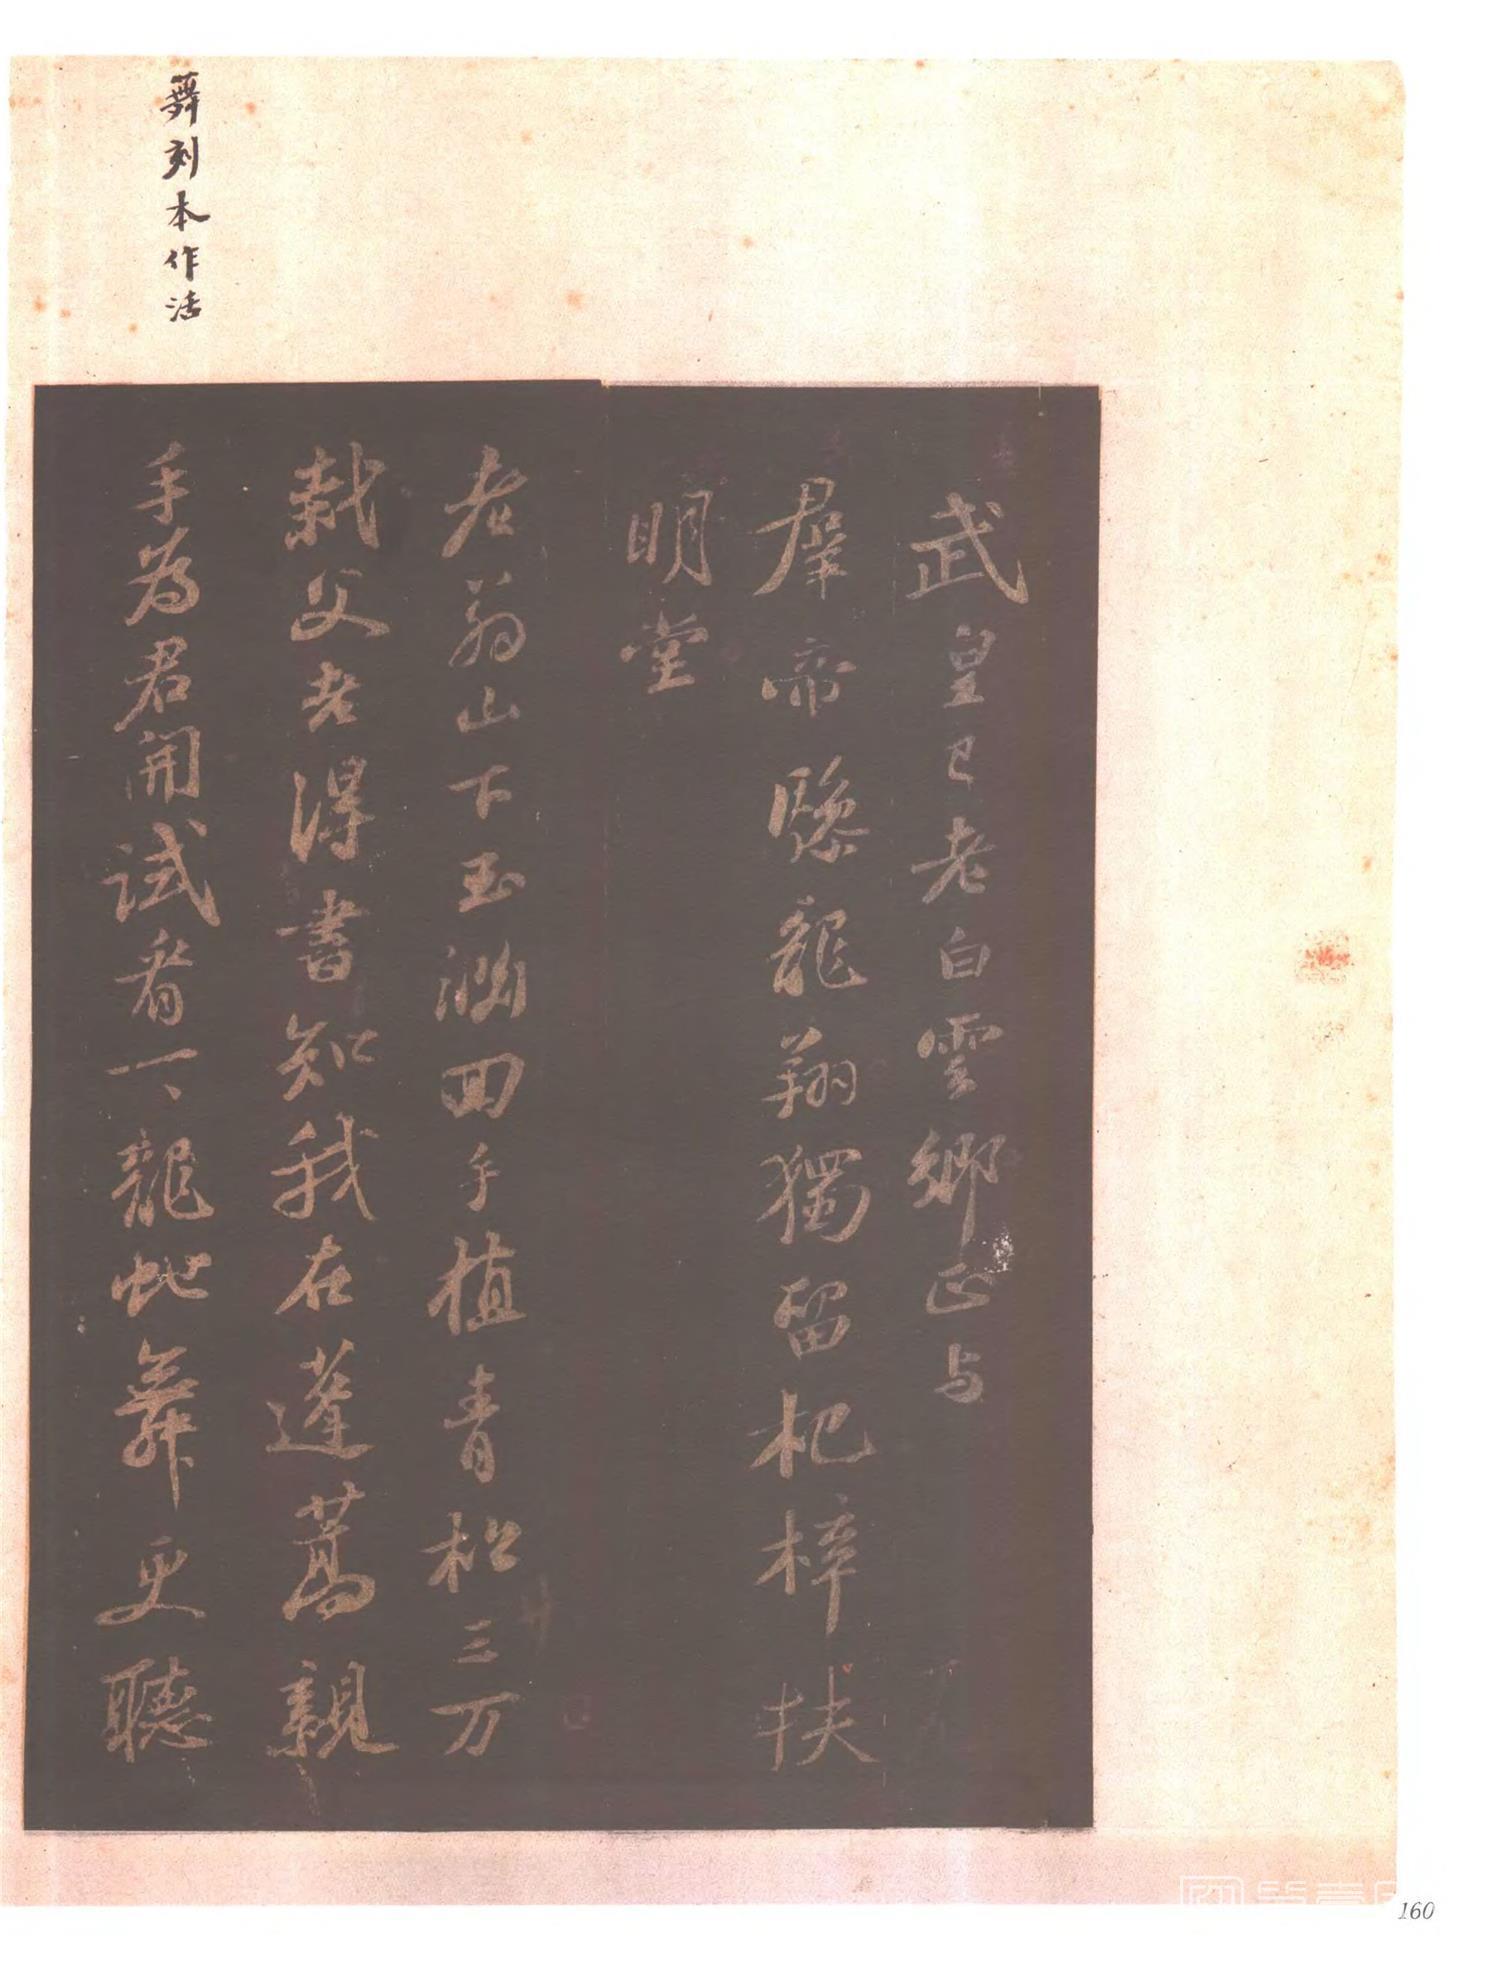 武皇已老白雲鄉正与
羣帝驂龍翔獨留杞梓扶
明堂
老翁山下玉淵回手植青松三万
栽父老得書知我在蓬蒿親
手為君開試看一、龍蛇舞更聽
舞刻本作活
160